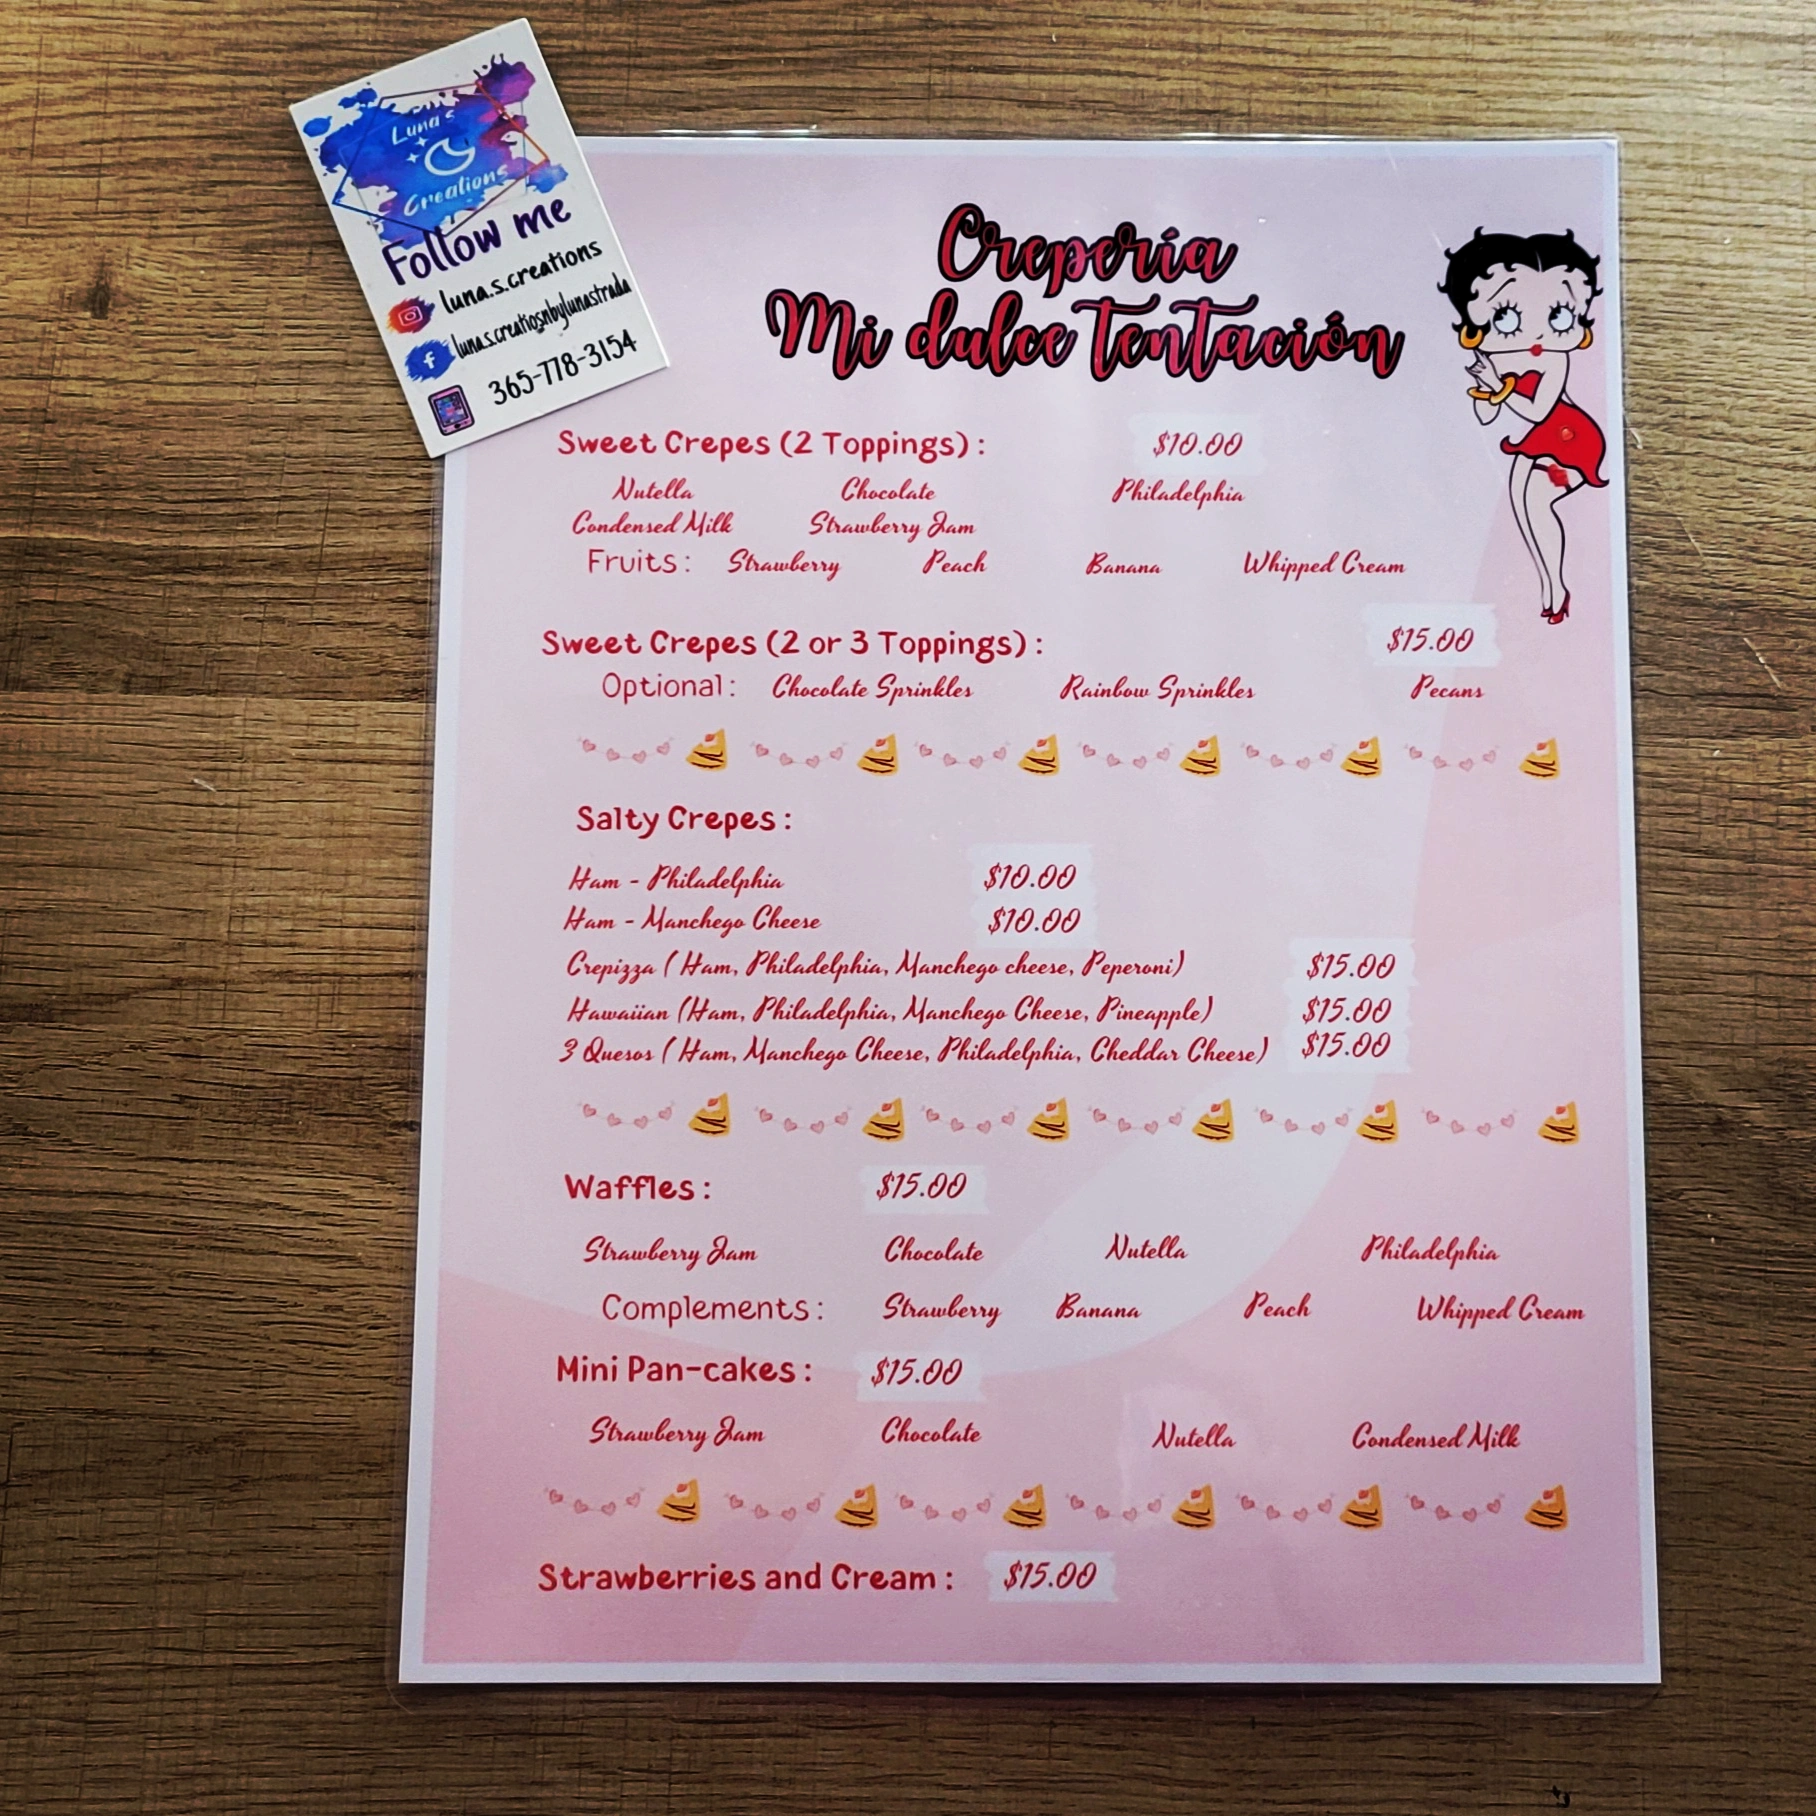 Luna's
Creations
Follow me
luna.s.creations
luna.s.creatiosnbylunastrada
365-778-3154
Crepería
Mi dulce Tentación
Sweet Crepes (2 Toppings) : $10.00
Nutella Chocolate Philadelphia
Condensed Milk Strawberry Jam
Fruits : Strawberry Peach Banana Whipped Cream
Sweet Crepes (2 or 3 Toppings) : $15.00
Optional : Chocolate Sprinkles Rainbow Sprinkles Pecans
Salty Crepes :
Ham - Philadelphia $10.00
Ham - Manchego Cheese $10.00
Crepizza ( Ham, Philadelphia, Manchego cheese, Peperoni) $15.00
Hawaiian (Ham, Philadelphia, Manchego Cheese, Pineapple) $15.00
3 Quesos ( Ham, Manchego Cheese, Philadelphia, Cheddar Cheese) $15.00
Waffles : $15.00
Strawberry Jam Chocolate Nutella Philadelphia
Complements : Strawberry Banana Peach Whipped Cream
Mini Pan-cakes : $15.00
Strawberry Jam Chocolate Nutella Condensed Milk
Strawberries and Cream : $15.00